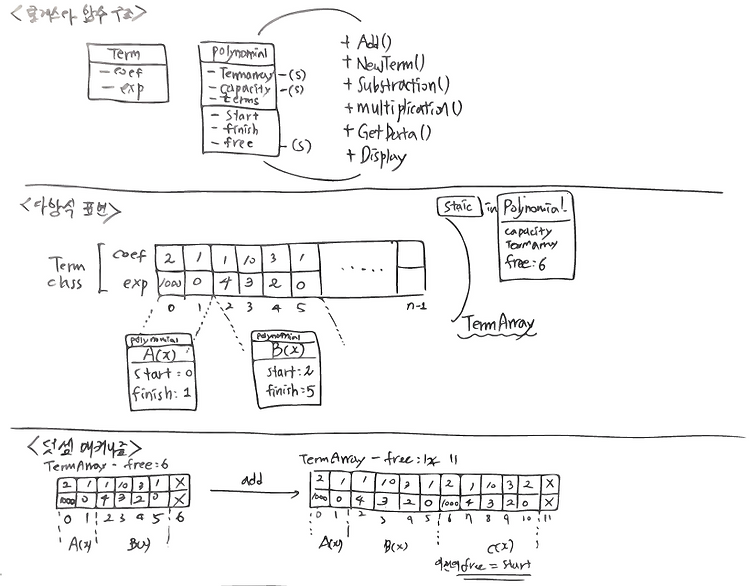 <클래스와 함수 구조>
Term
- coef
- exp
polynomial
- Termarray -(s)
- capacity -(s)
- terms
- start
- finish
- free -(s)
+ Add()
+ NewTerm()
+ Substraction()
+ multiplication()
+ GetData()
+ Display
<다항식 표현>
Term class
coef 2 1 1 10 3 1 .....
exp 1000 0 4 3 2 0
0 1 2 3 4 5 n-1
polynomial
A(x)
start = 0
finish: 1
polynomial
B(x)
start: 2
finish: 5
Staic in Polynomial
capacity
TermArray
free: 6
TermArray
<덧셈 메커니즘>
TermArray - free: 6
2 1 1 10 3 1 X
1000 0 4 3 2 0 X
0 1 2 3 4 5 6
A(x) B(x)
add
TermArray - free: 11
2 1 1 10 3 1 2 1 10 3 2 X
1000 0 4 3 2 0 1000 4 3 2 0 X
0 1 2 3 4 5 6 7 8 9 10 11
A(x) B(x) C(x)
free = start